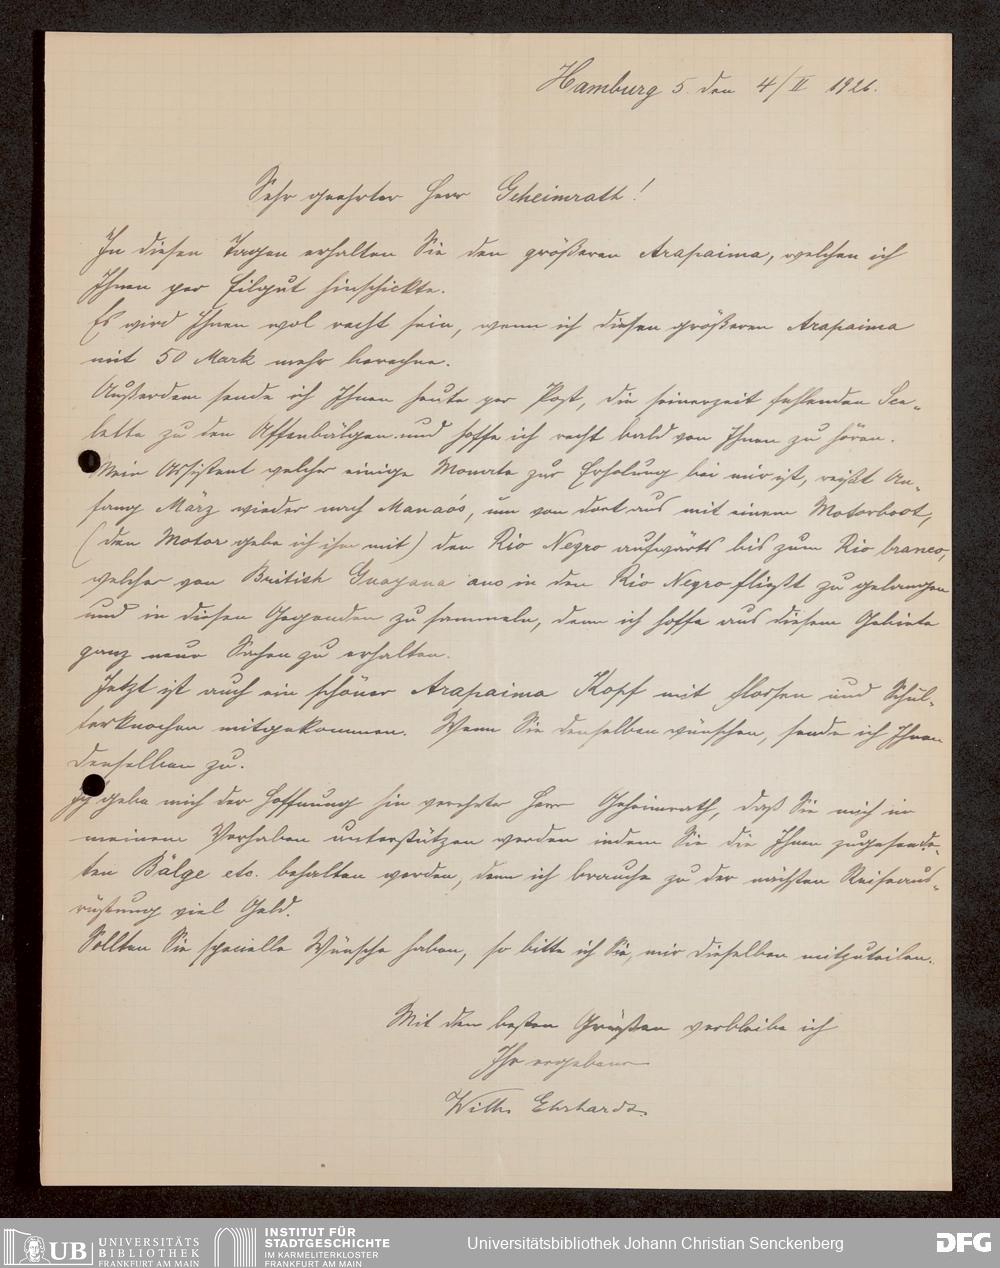 Hamburg 5. den 4/II 1926.
Sehr geehrter Herr Geheimrath!
In diesen Tagen erhalten Sie den größeren Arapaima, welchen ich
Ihnen per Eilgut hinschickte.
Es wird Ihnen wol recht sein, wenn ich diesen größeren Arapaima
mit 50 Mark mehr berechne.
Außerdem sende ich Ihnen heute per Post, die seinerzeit fehlenden Sce-
lette zu den Affenbälgen und hoffe ich recht bald von Ihnen zu hören.
Mein Assistent welcher einige Monate zur Erholung bei mir ist, reißt An-
fang März wieder nach Manaós, um von dort aus mit einem Motorboot,
(den Motor gebe ich ihm mit) den Rio Negro aufwärts bis zum Rio branco,
welcher von British Guayana aus in den Rio Negro fließt zu gelangen
und in diesen Gegenden zu sammeln, denn ich hoffe aus diesem Gebiete
ganz neue Sachen zu erhalten.
Jetzt ist auch ein schöner Arapaima Kopf mit Flossen und Schul-
terknochen mitgekommen. Wenn Sie denselben wünschen, sende ich Ihnen
denselben zu.
Ich gebe mich der Hoffnung hin verehrter Herr Geheimrath, daß Sie mich in
meinem Vorhaben unterstützen werden indem Sie die Ihnen zugesende-
ten Bälge etc. behalten werden, denn ich brauche zu der nächsten Reiseaus-
rüstung viel Geld.
Sollten Sie specielle Wünsche haben, so bitte ich Sie, mir dieselben mitzuteilen.
Mit den besten Grüßen verbleibe ich
Ihr ergebener
Wilh. Ehrhardt
UB UNIVERSITÄTS
BIBLIOTHEK
FRANKFURT AM MAIN
INSTITUT FÜR
STADTGESCHICHTE
IM KARMELITERKLOSTER
FRANKFURT AM MAIN
Universitätsbibliothek Johann Christian Senckenberg
DFG